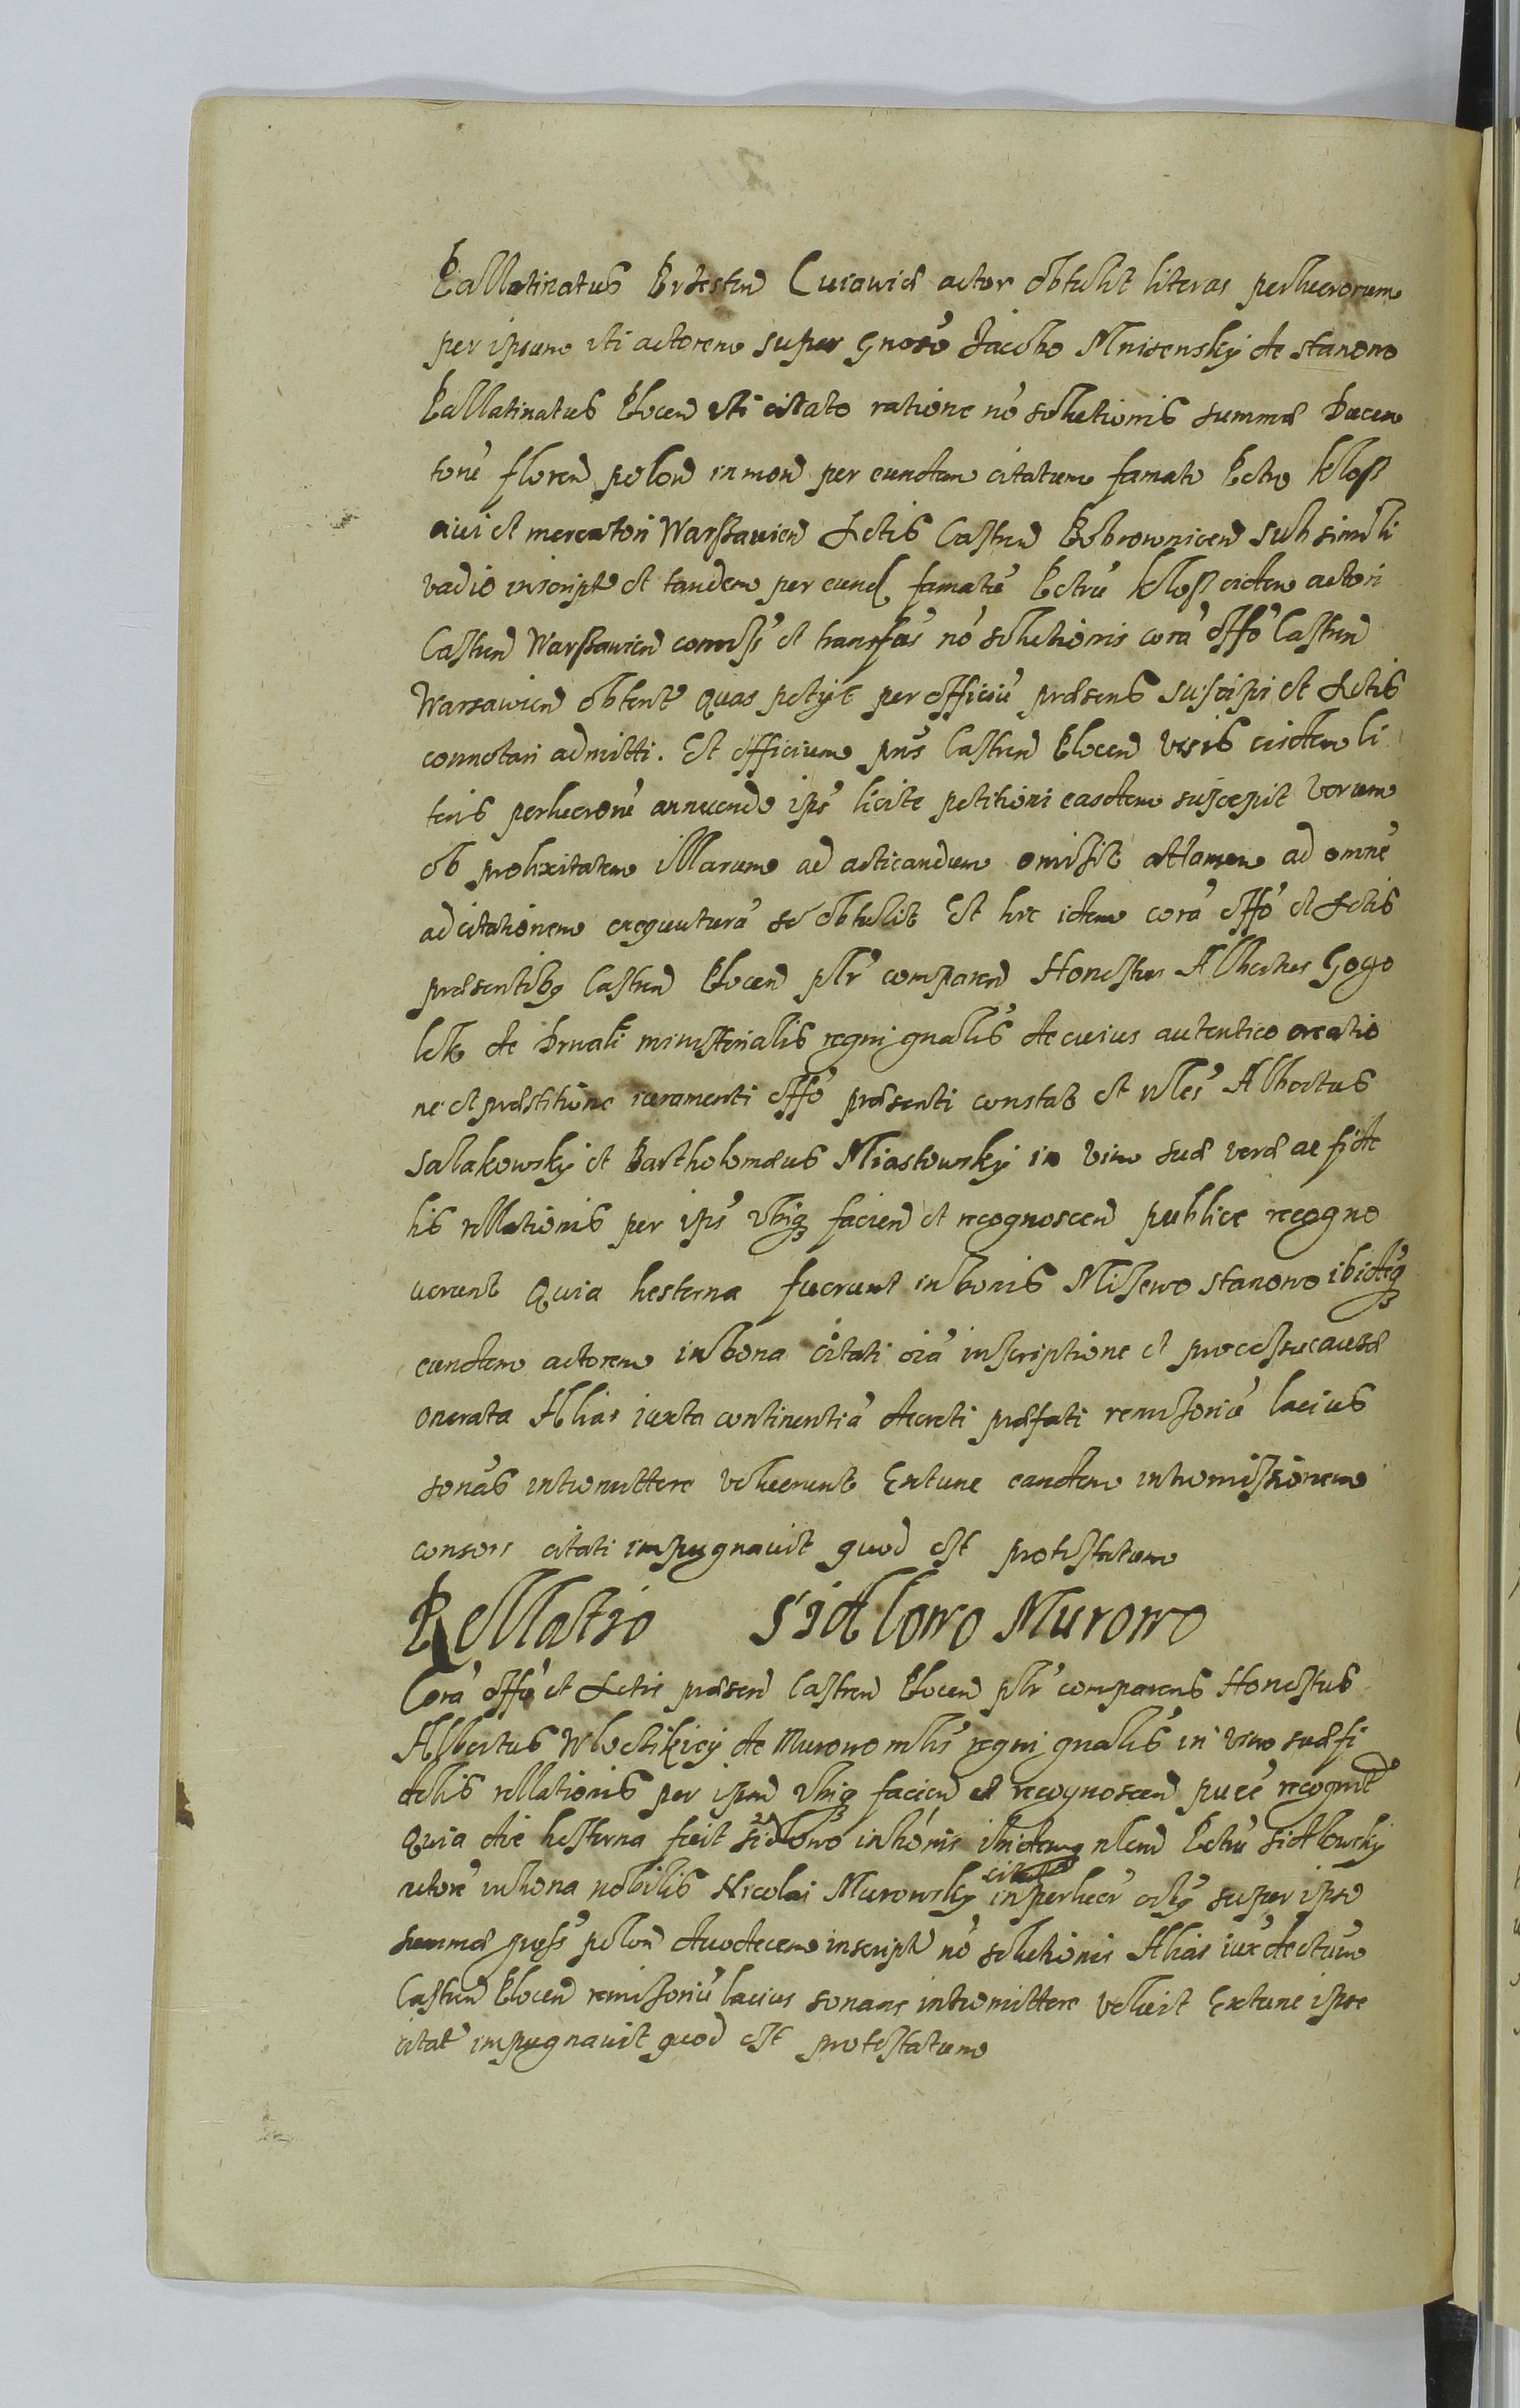 Pallatinatus Brzesten Cuiawiæ actor obtulit literas perlucrorum
per ipsum uti actorem super Gnoso Jacobo Mnisensky de Stanowo
Pallatinatus Plocen uti citato ratione no solutionis summæ Ducen
torū floren polon in mon per eundem citatum famato Petro Kloss
civi et mercatori Warssavien Actis Castren Bobrownicen sub simili
vadio inscript et tandem per eund famatū Petrū Kloss eidem actori
Castren Warssavien et transfus nō solutionis corā offō Castren
Warsavien obtent quas petÿt per officiū præsens suscipi et Actis
connotari admitti. Et officium pns Castren Plocen visis eisdem li
teris perlucrorū annuendo ips licite petitioni easdem suscepit verum
ob prolixitatem illarum ad acticandum omisit attamen ad omnē
ad citationem exequuturā se obtulit Et hic idem corā offō et Actis
præsentibq Castren Plocen plr comparen Honestus Albertus Gogo
lek de Drwali ministerialis regni gnalis de cuius autentico creatio
ne et præstitione iuramenti offō præsenti constat et nbles Albertus
Salakowsky et Bartholomæus Miastowsky in vim suæ veræ ac fide
lis rellationis per ips ubiq facien et recognoscen publice recogno
verunt Quia hesterna fuerunt in bonis Misewo Stanowo ibideq
eundem actorem in bona citati oiā inscriptione et processu causæ
onerata Alias iuxta continentiā decreti præfati remissoriū lacius
sonās intromittere voluerunt Extunc eandem intromissionem
consors citati impugnavit quod est protestatum
Rellatio Sidlowo Murowo
Corā offō et Actis præsen Castren Plocen plr comparens Honestus
Albertus de Murowo mlis regni gnalis in vim suæ fi
delis rellationis per ipsū ubiq facien et recognoscen puce recognit
Quia die hesterna fuit Sidlowo in bonis ibidemq nlem Petrū Sidlowsky
actorē in bona nobilis Nicolai Murowsky citati in perlucr super ipso
summæ gross polon duodecem inscript nō solutionis Alias iux dectum
Castren Plocen remissoriū lacius sonans intromittere voluit Extunc ipse
citat impugnavit quod est protestatum